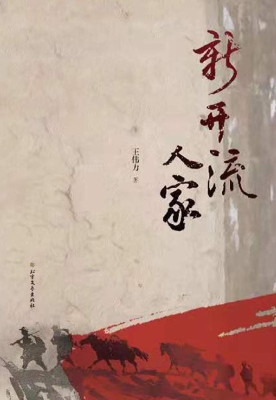 新开流
人家
王伟力 著
北方文艺出版社